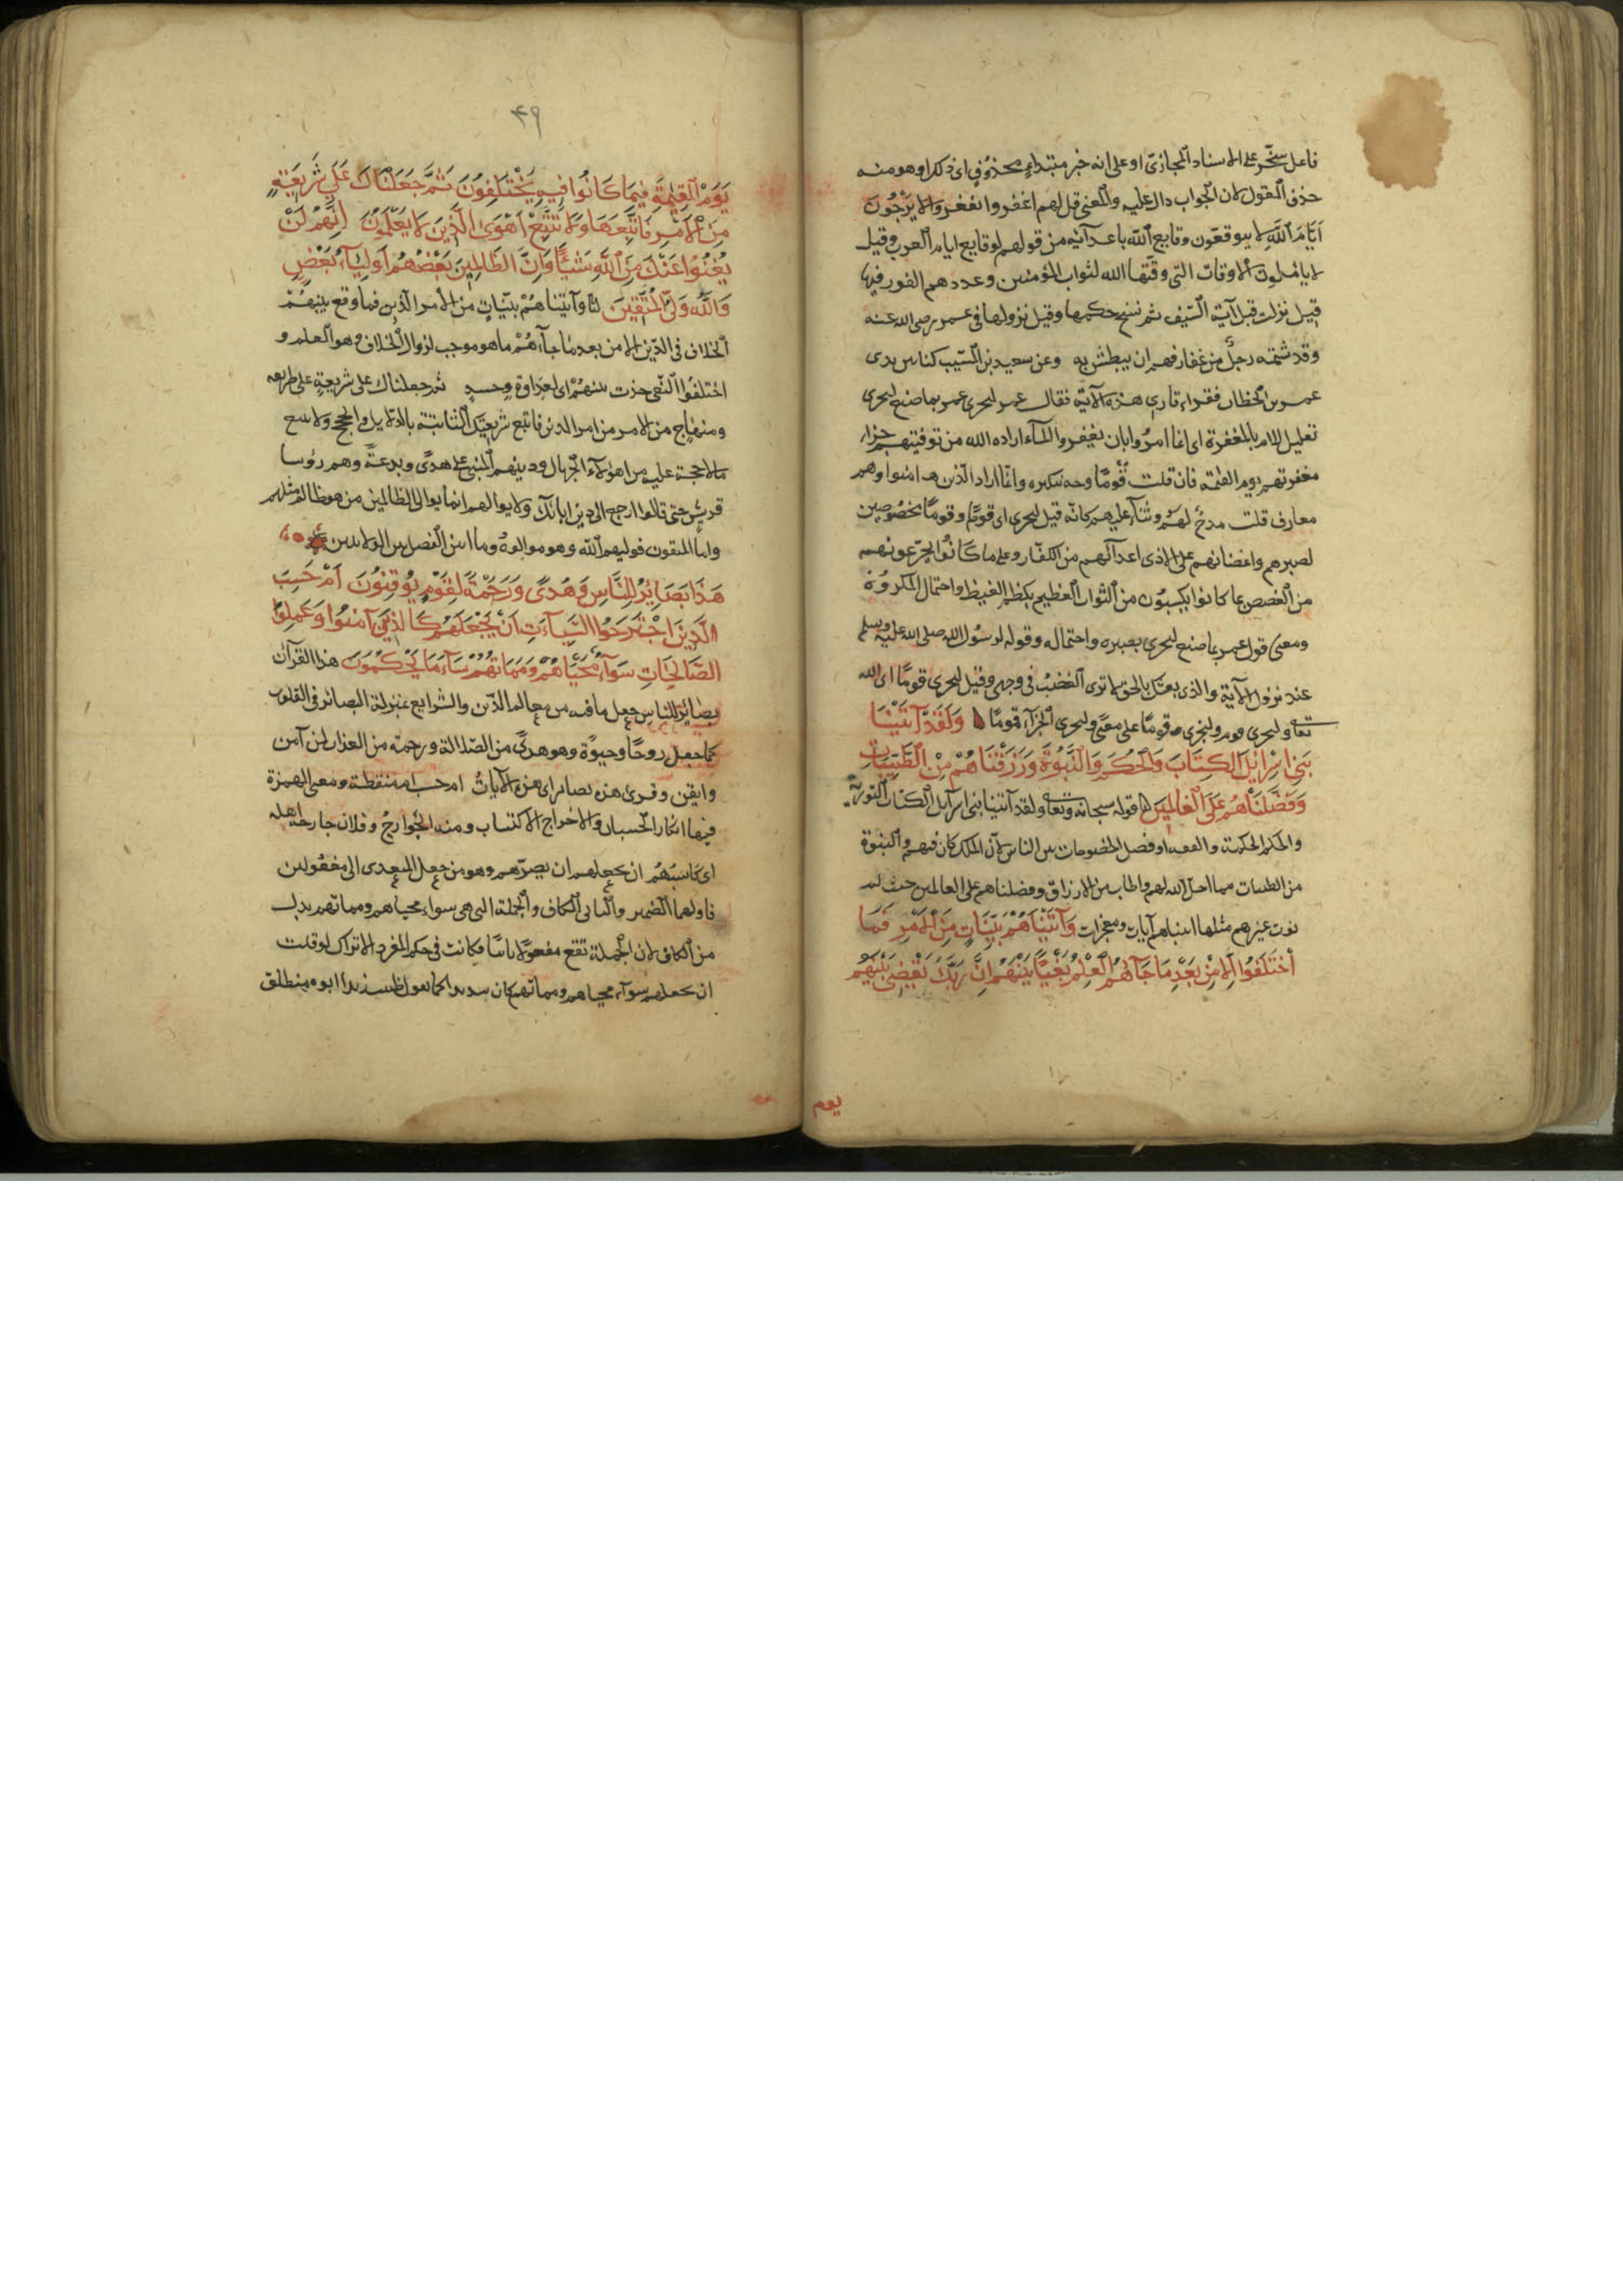 فاعل سخّر على الاسناد المجازىّ او على انه خبر مبتداءٍ محذوُفٍ اى ذلك او هو منه
حذف القول لان الجواب دال عليه والمعنى قل لهم اغفروا يغفروا لا يَرْجُونَ
اَيَّامَ اللَّهِ لا يتوقعّون وقايع اللّه باعدآئه من قولهم لوقايع ايام العرب وقيل
لا ياملون الاوقات التى وقّتها اللّه لثواب المؤمنين وعدهم الفوز فيها
قيل نزلت قبل آية السّيف ثم نسخ حكمها وقيل نزولها فى عمر رضى الله عنه
وقد شتمه رجلٌ من غفار فهم ان يبطش به وعن سعيد بن المسّيب كنا بين يدى
عمر بن الخطاب فقراء قارى هذه الآية فقال عمر ليجزى عمر بما صنع ليجزى
تعليل للامر بالمغفرة اى انما امرُوا بان يغفروا لمآ اراده الله من توفيتهم جزاء
مغفرتهم يوم القيمة فان قلت قومًا وجه تنكيره وانمّا اراد الذين هم امنوا وهم
معارف قلت مدحٌ لهُم وثنآء عليهم كانّه قيل ليجزى اى قومًا وقومًا مخصُوصين
لصبرهم واغضائهم على الاذى اعدآئهم من الكفّار وعلى ما كَانُوا يجرّعونهم
من الغصص بما كانوا يكسِبُون من الثواب العظيم بكظم الغيظ واحتمال المكروُه
ومعنى قول عمر بما صنع ليجزى بصبره واحتماله وقوله لرسُول الله صلى الله عليه وسلم
عند نزول الآية والذى بعثك بالحق لا ترى الغضبُ فى وجهى وقيل ليجزى قومًا اى الله
تعا وليجزى قوم وليجزى قومًا على معنى وليجزى الجزآء قومًا وَلَقَدْ آتَيْنَا
بَنِىٓ اِسْرَآئِيلَ الكِتَابَ وَالحُكمَ وَالنُّبُوَّةَ وَرَزَقْنَاهُمْ مِنْ الطَّيِّبَاتِ
وَفَضَّلْنَاهُمْ عَلَى العَالَمِينَ قوله سبحانه وتعا ولقد آتينا بنى اسرآئيل الكتاب التورية
والحكم الحكمة والفقه او فصل الخصومات بين الناس لانّ الملك كان فيهم والنبوة
من الطيبات مما احلّ اللّه لهم واطاب من الارزاق وفضلناهم على العالمين حيث لم
نوت غيرهم مثلها آتيناهم آيات ومعجزات وَآتَيْنَاهُمْ بَيِّنَاتٍ مِنَ الاَمْرِ فَمَا
اَخْتَلَفُوا اِلَّا مِنْ بَعْدِ مَا جَآءَهُمُ العِلْمُ بَغْيًا بَيْنَهُمْ اِنَّ رَبَّكَ يَقْضِى بَيْنَهُم
يوم
٤٩
يَوْمَ القِيٰمَةِ فِيمَا كَانُوا فِيهِ يَخْتَلِفُونَ ثُمَّ جَعَلْنَاكَ عَلَى شَرِيعَةٍ
مِنَ الاَمْرِ فَاتَّبِعْهَا وَلَا تَتَّبِعْ اَهْوَآءَ الَّذِينَ لَا يَعْلَمُونَ اِنَّهُمْ لَنْ
يُغْنُوا عَنْكَ مِنَ اللَّهِ شَيْئًا وَاِنَّ الظَّالِمِينَ بَعْضُهُمْ اَوْلِيَآءُ بَعْضٍ
وَاللَّهُ وَلِىُّ المُتَّقِينَ وآتيناهُمْ بيّناتٍ من الامر الذين فما وقع بينهُمْ
الخلاف فى الدّين الا من بعد ما جآءهُمْ ما هو موجب لزوال الخلاف وهو العلم و
اختلفُوا لبغى حدث بينهُمْ اى لعداوة وحسدٍ ثم جعلناك على شريعةٍ على طريقه
ومنهاج من الامر من امر الدين فاتبع شريعتك الثابتة بالدّلايل والحجج ولا تتبع
مالا حجة عليه من اهوآء الجهال ودينهم المبنى على هدًى وبدعةٌ وهم رؤسا
قريش حتى قالوا ارجع الى دين ابائك ولا يوالهم انما يوالى الظالمين من هو ظالم مثلهم
وامّا المتقون فوليهم اللّه وهو موالوهُ وما ابين الفصل بين الولايتين
هَذَا بَصَآئِرُ لِلنَّاسِ وَهُدًى وَرَحْمَةٌ لِقَوْمٍ يُوقِنُونَ اَمْ حَسِبَ
الَّذِينَ اجْتَرَحُوا السَّيِّآءَتِ اَنْ نَجْعَلَهُمْ كَالَّذِينَ آمَنُوا وَعَمِلُوا
الصَّالِحَاتِ سَوَآءً مَحْيَاهُمْ وَمَمَاتُهُمْ سَآءَ مَا يَحْكُمُونَ هذا القرآن
بصائر للناس جعل ما فيه من معالم الدّين والشرايع بمنزلة البصائر فى القلوب
كما جعل روحًا وحيوةً وهو هدىً من الضلالة ورحمة من العذاب لمن آمن
وايقن وقرئ هذه بصائر اى هذه الآيات ام حسب ام منقطعة ومعنى الهمزة
فيها انكار الحسبان والاخراج الاكتساب ومنه الجوارحُ وفلان جارحة اهله
اى كاسبُهُمْ ان نجعلهم ان نصيّرهم وهو من جعل المتعدى الى مفعولين
فاولهما الضمير والثانى الكاف والجملة التى هى سواء محياهم ومماتهم بدل
من الكاف لان الجملة تقع مفعولاً ثانيًا فكانت فى حكم المفرد الا تراك لو قلت
ان نجعلهم سوآء محياهم ومماتهم كان سديدا كما تقول ظننت زيدا ابوه منطلق